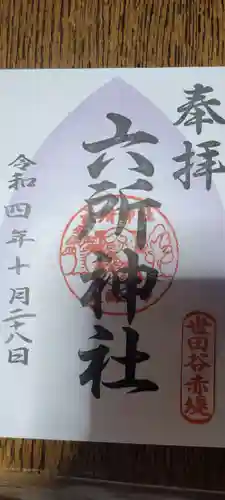 奉拝
六所神社
世田谷赤堤
令和四年十月二十八日